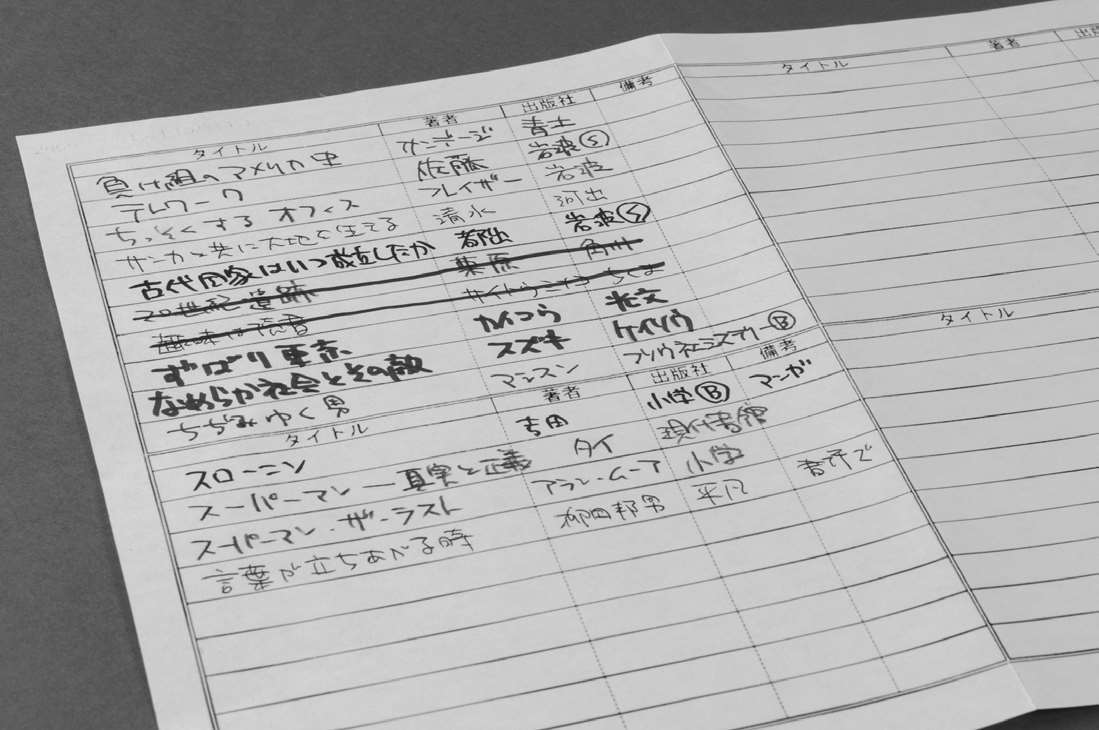 タイトル 著者 出版社 備考
負け組のアメリカ史 サンデージ 青土
テレワーク 佐藤 岩波Ⓢ
ちっそくするオフィス フレイザー 岩波
サンカと共に大地に生きる 清水 河出
古代国家はいつ成立したか 都出 岩波Ⓢ
20世紀遺跡 栗原 角川
無味な読書 サイトウミナコ ちくま
ずばり東京 カイコウ 光文
なめらかな社会とその敵 スズキ ケイソウ
ちぢみゆく男 マシスン フソウ社ミステリーⒷ
タイトル 著者 出版社 備考
スローニン 吉田 小学Ⓑ マンガ
スーパーマン―真実と正義 タイ 現代書館
スーパーマン・ザ・ラスト アラン・ムーア 小学
言葉が立ちあがる時 柳田邦男 平凡
タイトル 著者 出版
タイトル